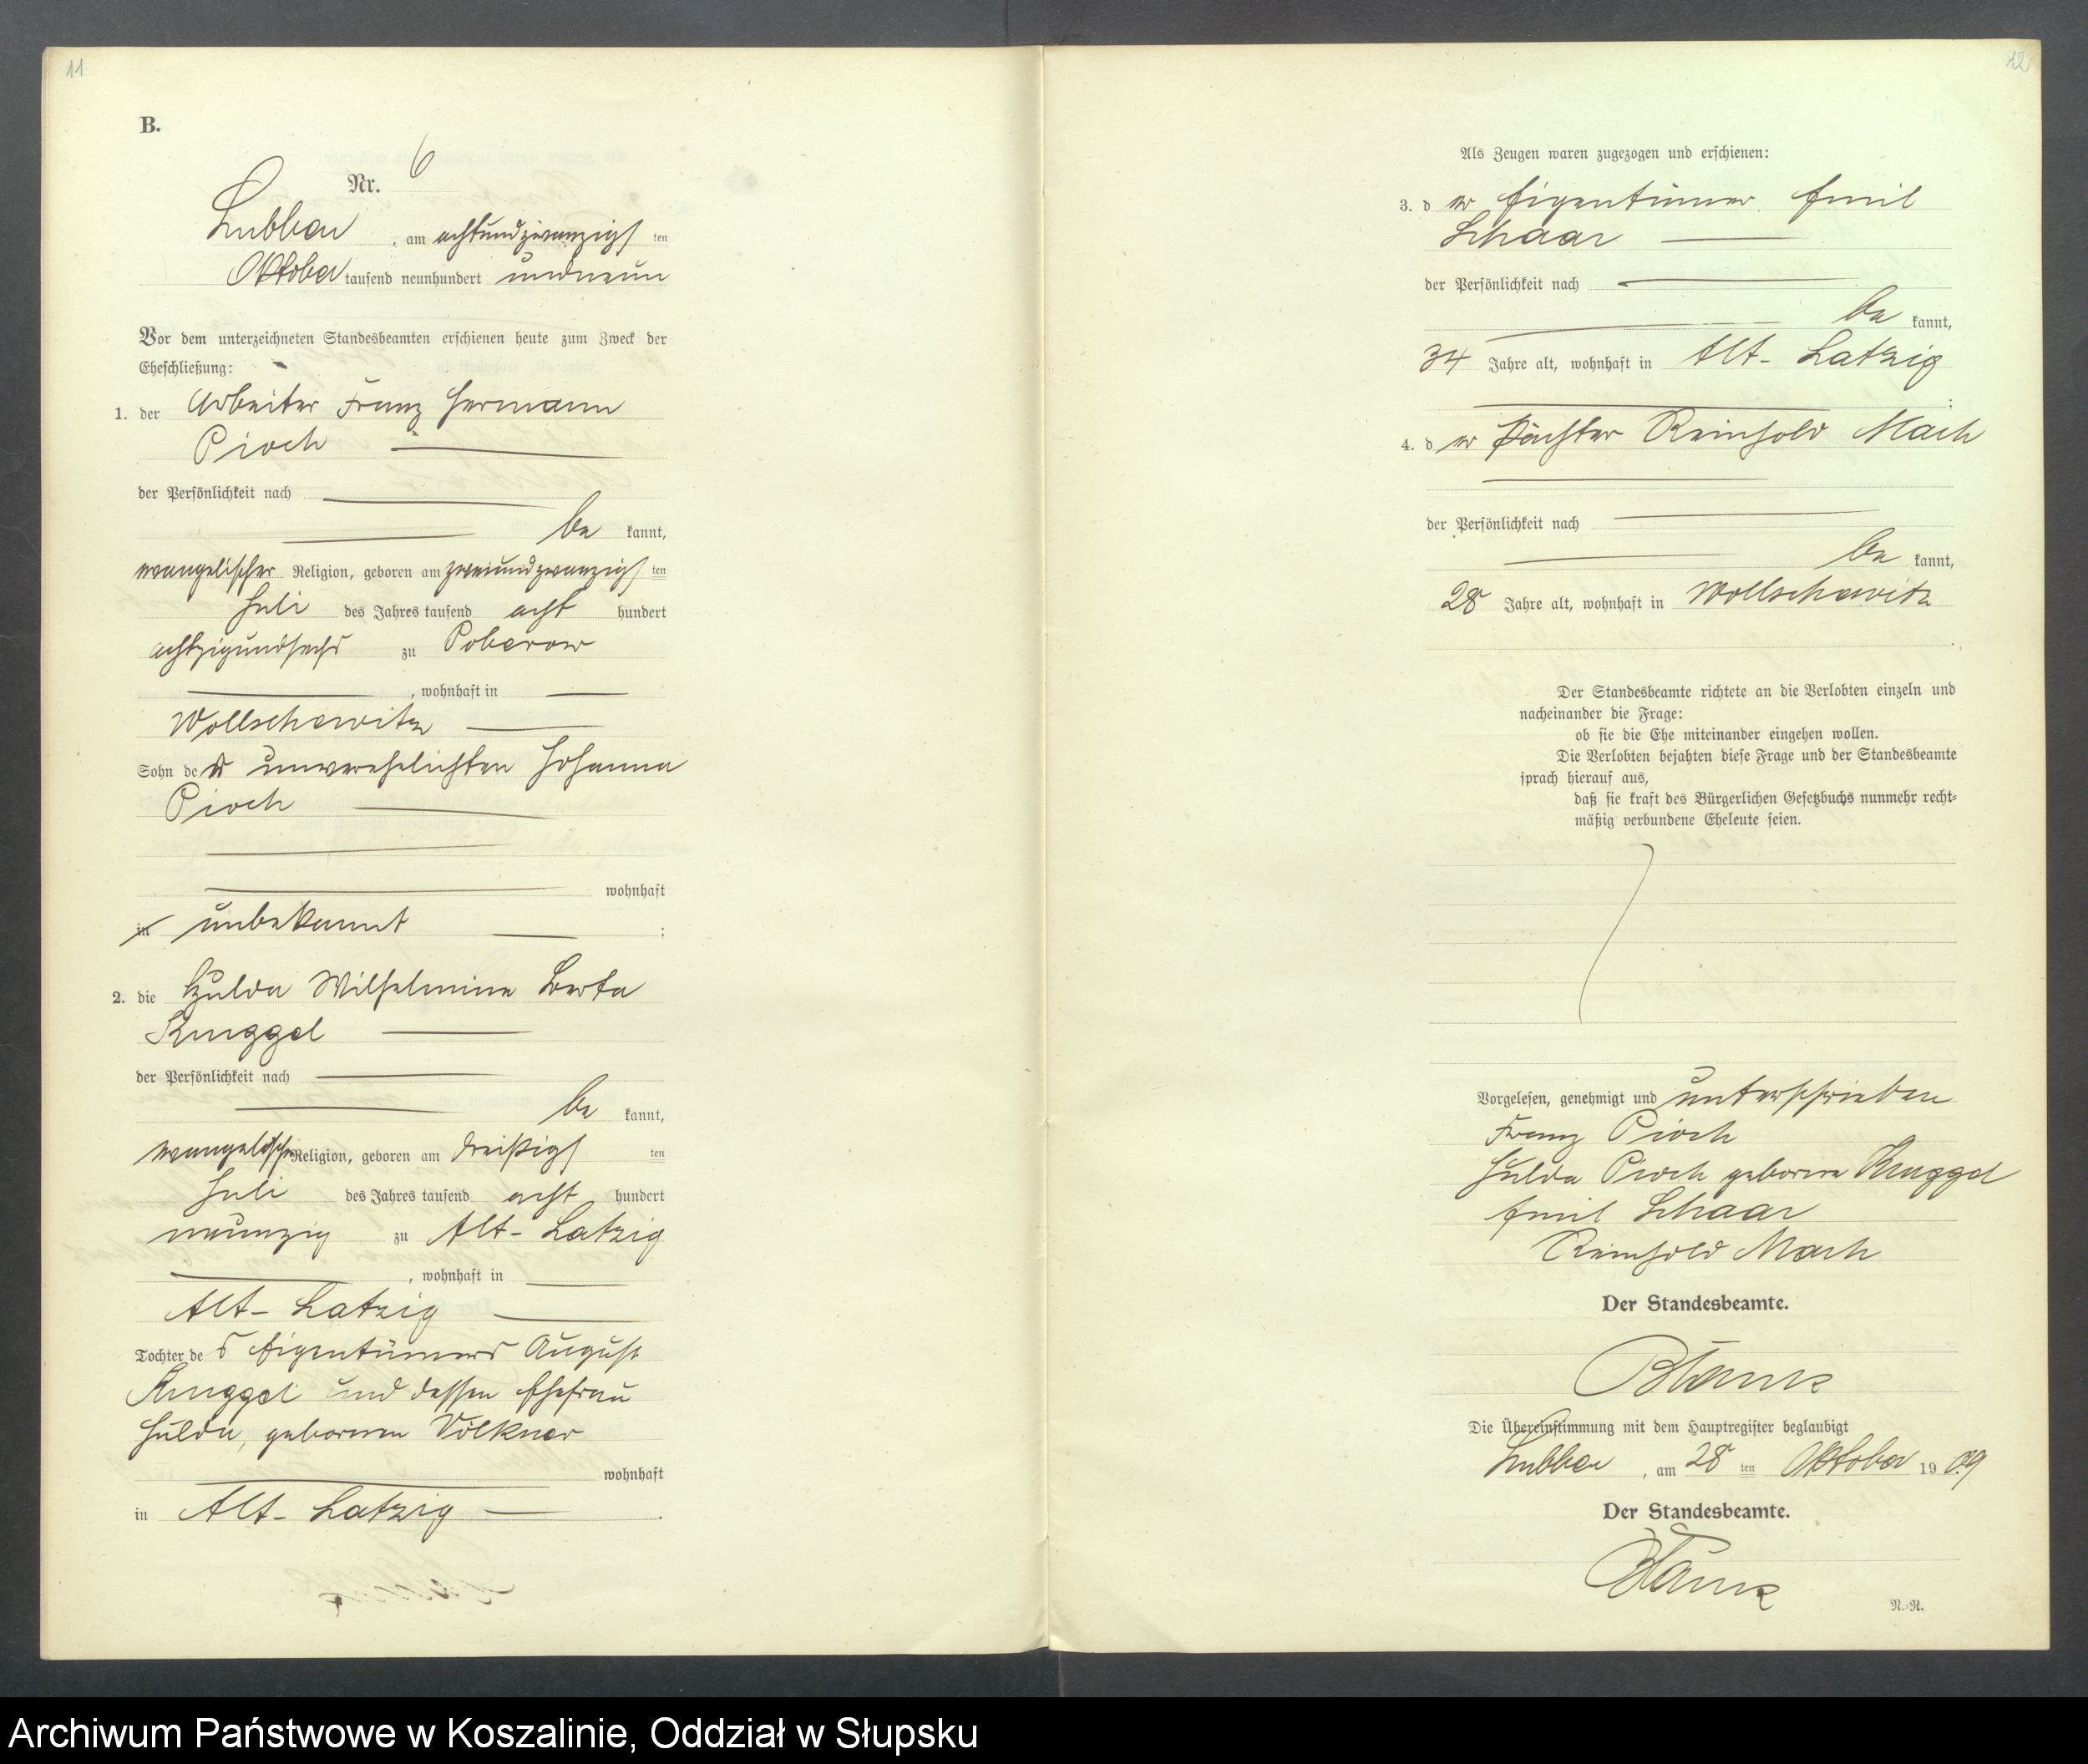 11
B.
Nr. 6
Lubben, am achtundzwanzigsten
Oktober tausend neunhundert undneun
Vor dem unterzeichneten Standesbeamten erschienen heute zum Zweck der
Eheschließung:
1. der Arbeiter Franz Hermann
Pioch
der Persönlichkeit nach
be kannt,
evangelischer Religion, geboren am zweiundzwanzigsten
Juli des Jahres tausend acht hundert
achtzigundsechs zu Poberow
, wohnhaft in
Wollschewitz
Sohn der unverehelichten Johanna
Pioch
wohnhaft
in unbekannt ;
2. die Hulda Wilhelmine Berta
Kruggel
der Persönlichkeit nach
be kannt,
evangelischer Religion, geboren am dreißigsten
Juli des Jahres tausend acht hundert
neunzig zu Alt-Latzig
, wohnhaft in
Alt-Latzig
Tochter des Eigentümers August
Kruggel und dessen Ehefrau
Hulda, geborenen Völkner
wohnhaft
in Alt-Latzig .
12
Als Zeugen waren zugezogen und erschienen:
3. der Eigentümer Emil
Schaar
der Persönlichkeit nach
be kannt,
34 Jahre alt, wohnhaft in Alt-Latzig
;
4. der Pächter Reinhold Mach
der Persönlichkeit nach
be kannt,
28 Jahre alt, wohnhaft in Wollschewitz
.
Der Standesbeamte richtete an die Verlobten einzeln und
nacheinander die Frage:
ob sie die Ehe miteinander eingehen wollen.
Die Verlobten bejahten diese Frage und der Standesbeamte
sprach hierauf aus,
daß sie kraft des Bürgerlichen Gesetzbuchs nunmehr recht-
mäßig verbundene Eheleute seien.
Vorgelesen, genehmigt und unterschrieben
Franz Pioch
Hulda Pioch geborene Kruggel
Emil Schaar
Reinhold Mach
Der Standesbeamte.
Die Übereinstimmung mit dem Hauptregister beglaubigt
Lubben, am 28 ten Oktober 19 09
Der Standesbeamte.
N.-R.
Archiwum Państwowe w Koszalinie, Oddział w Słupsku